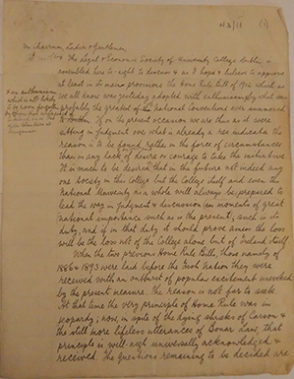 N3/11 (1)
Mr Chairman, Ladies & Gentlemen,
The Legal & Economic Society of University College Dublin is
assembled here to-night to discuss & as I hope & believe to approve
at least in its main provisions the Home Rule Bill of 1912 which as
we all know was yesterday adopted with enthusiasm by what was
probably the greatest of the National Conventions ever summoned
If on the present occasion we are thus as it were
sitting in judgment on what is already a
the reason is to be found rather in the force of circumstances
than in any lack of desire or courage to take the initiative
It is much to be desired that in the future not indeed any
one Society in this College but the College itself and even the
National University as a whole will always be prepared to
lead the way in judgment & discussion on moments of great
national importance such as is the present, such is its
duty, and if in that duty it should prove amiss the loss
will be the loss not of the College alone but of Ireland itself
When the two previous Home Rule Bills, those namely of
1886 & 1893 were laid before the Irish Nation they were
received with an outburst of popular excitement unevoked
by the present measure. The reason is not far to seek.
At that time the very principle of Home Rule was in
jeopardy; now, in spite of the dying shrieks of Carson &
the still more lifeless utterances of Bonar Law, that
principle is well nigh universally acknowledged &
received. The questions remaining to be decided are